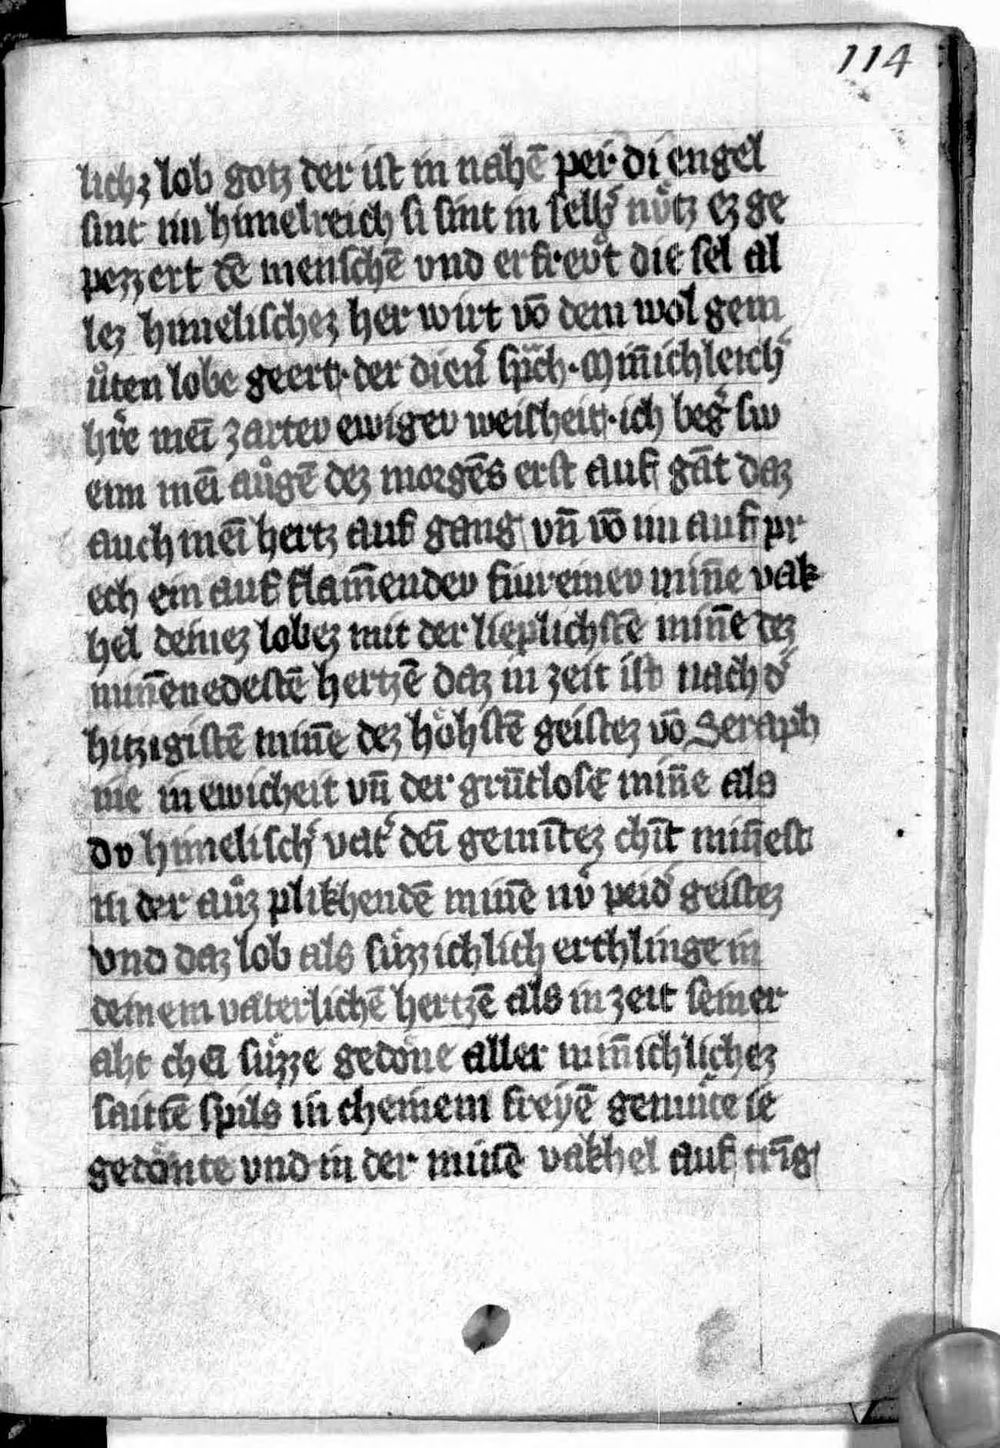 114
lichz lob gotz der ist in nahē pei · di engel
sint im himelreich si sint in selbʼ nuͦtz ez ge
pezzert dē menschē vnd erfreuͦt die sel al
lez himelischez her wirt vō dem wol gem
uͦten lobe geert · der dienʼ sprach · Miñichleichʼ
hʼre mēi zartev ewigev weisheit · ich begʼ sw
enn mēi auͦgē dez morgēs erst auf gāt daz
auch mēi hertz auf gang vn̄ vō im auf pr
ech ein auf flam̄endev fiureinev min̄e vak
hel deinez lobez mit der lieplichstē min̄e dez
min̄enedestē hertzē daz in zeit ist nach dʼ
hitzigistē min̄e dez hoͤhstē geistez vō Seraph
nie in ewicheit vn̄ der grūtlosē min̄e als
dv himelischʼ vatʼ dēi gemītez chīt min̄est
in der auͦz plikhendē min̄e iwʼ peidʼ geistez
vnd daz lob als suͤzzichlich erchlinge in
deinem vaterlichē hertzē als in zeit seiner
aht chēi suͤzze gedoͤne aller min̄ichlichez
saittē spils in cheinem freyē gemuͤte ie
gedoͤnte vnd in der minē vakhel auf trīg